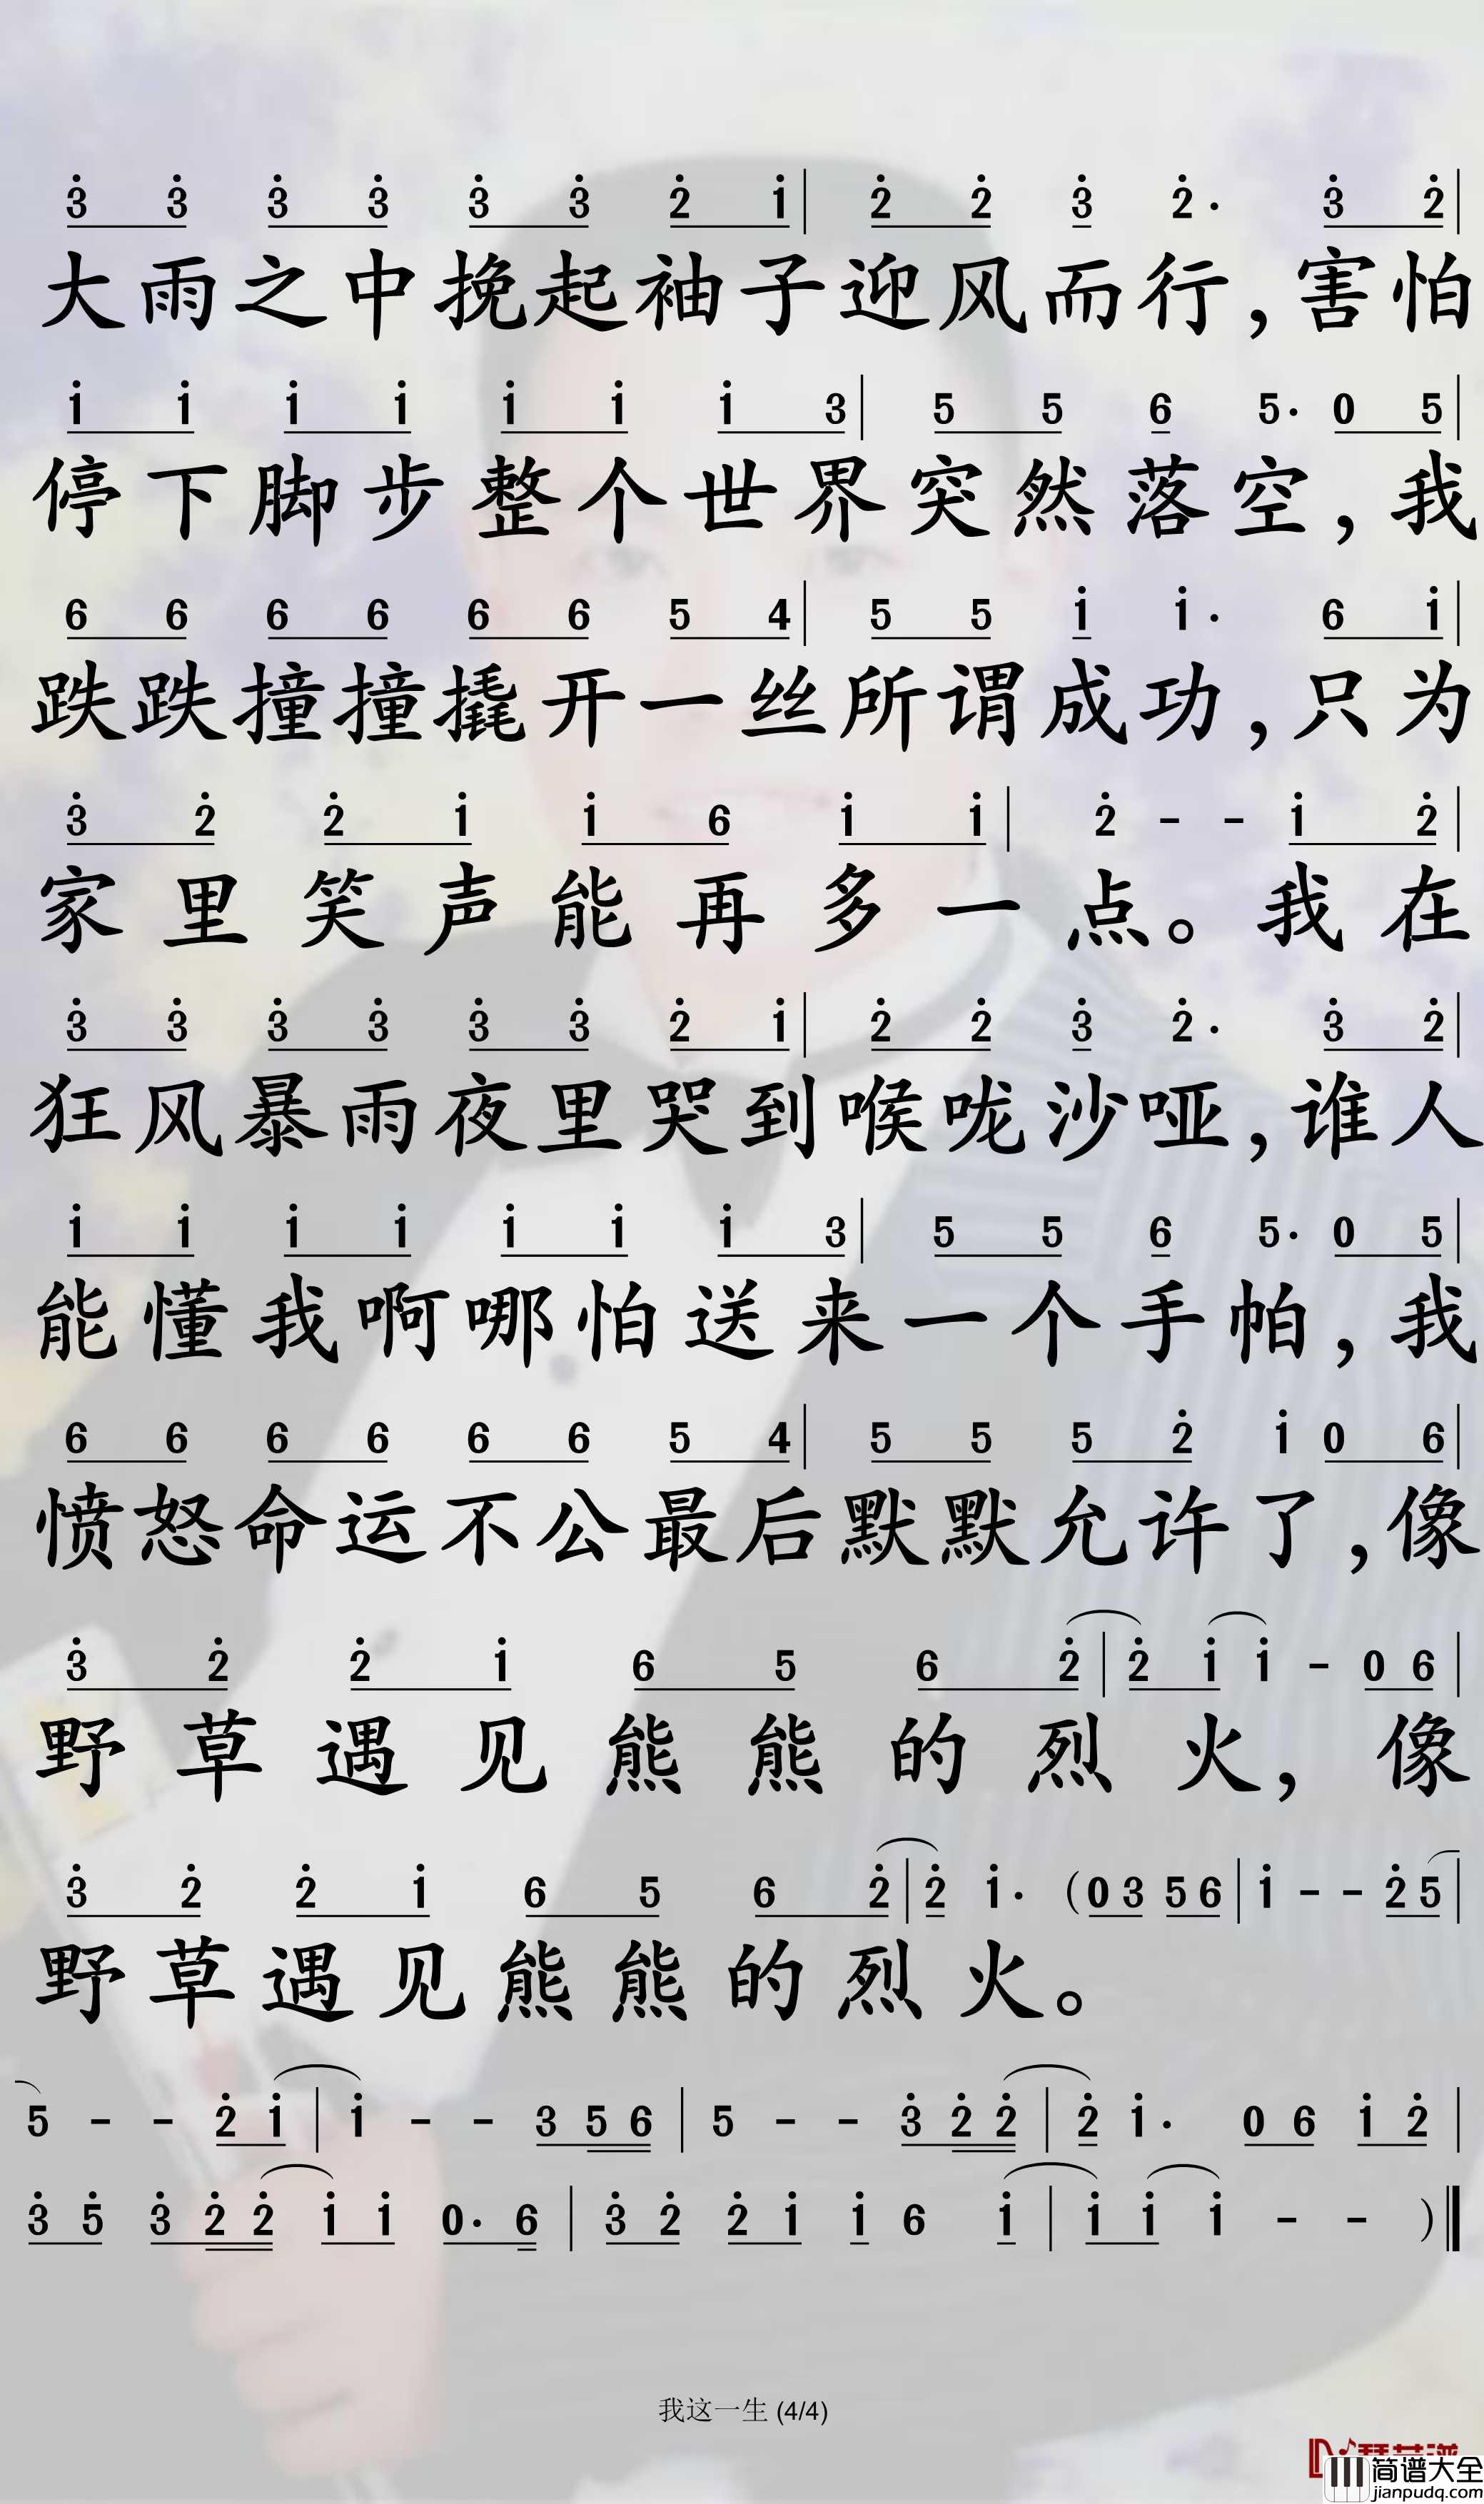 3 3 3 3 3 3 2 1 | 2 2 3 2· 3 2 |
大雨之中挽起袖子迎风而行,害怕
1 1 1 1 1 1 1 3 | 5 5 6 5· 0 5 |
停下脚步整个世界突然落空,我
6 6 6 6 6 6 5 4 | 5 5 1 1· 6 1 |
跌跌撞撞撬开一丝所谓成功,只为
3 2 2 1 1 6 1 1 | 2 - - 1 2 |
家里笑声能再多一点。我在
3 3 3 3 3 3 2 1 | 2 2 3 2· 3 2 |
狂风暴雨夜里哭到喉咙沙哑,谁人
1 1 1 1 1 1 1 3 | 5 5 6 5· 0 5 |
能懂我啊哪怕送来一个手帕,我
6 6 6 6 6 6 5 4 | 5 5 5 2 1 0 6 |
愤怒命运不公最后默默允许了,像
3 2 2 1 6 5 6 2 | 2 1 1 - 0 6 |
野草遇见熊熊的烈火,像
3 2 2 1 6 5 6 2 | 2 1· (0 3 5 6 | 1 - - 2 5 |
野草遇见熊熊的烈火。
5 - - 2 1 | 1 - - 3 5 6 | 5 - - 3 2 2 | 2 1· 0 6 1 2 |
3 5 3 2 2 1 1 0· 6 | 3 2 2 1 1 6 1 | 1 1 1 - - )
我这一生 (4/4)
简谱大全
jianpudq.com